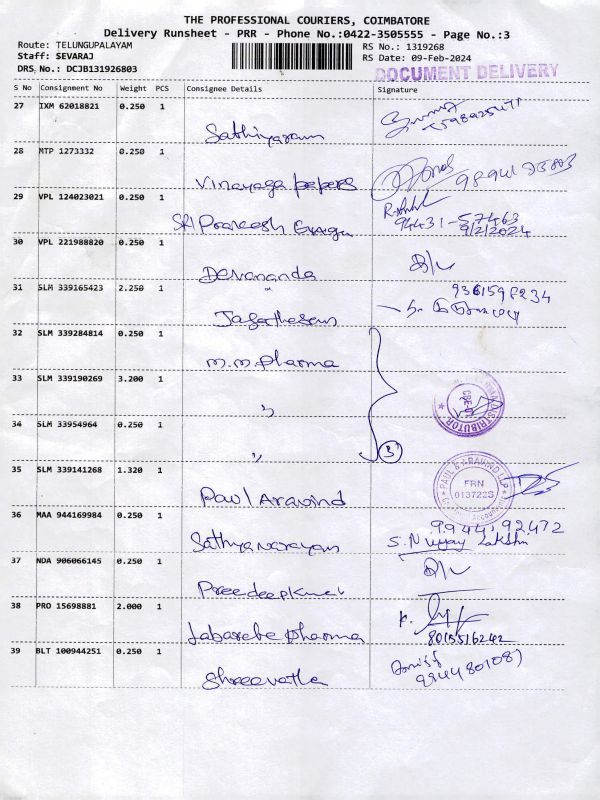 THE PROFESSIONAL COURIERS, COIMBATORE
Delivery Runsheet - PRR - Phone No.:0422-3505555 - Page No.:3
Route: TELUNGUPALAYAM RS No.: 1319268
Staff: SEVARAJ RS Date: 09-Feb-2024
DRS No.: DCJB131926803 DOCUMENT DELIVERY
S No Consignment No Weight PCS Consignee Details Signature
27 IXM 62018821 0.250 1
Sathiyaram
28 MTP 1273332 0.250 1
Vinayaga papers
29 VPL 124023021 0.250 1
SRI Prakash 94431-57463
9/2/2024
30 VPL 221988820 0.250 1
Devananda
31 SLM 339165423 2.250 1 9361598234
Jagathesan
32 SLM 339284814 0.250 1
M.M. Pharma
33 SLM 339190269 3.200 1
"
34 SLM 33954964 0.250 1
" 3
DISTRIBUTOR
35 SLM 339141268 1.320 1
Paul Aravind
PAUL & ARAVIND LLP
FRN
013722S
36 MAA 944169984 0.250 1 9944192472
Sathyanarayan S. N Vijay Lakshmi
37 NDA 906066145 0.250 1
Preedeepkumar
38 PRO 15698881 2.000 1
Pharma 8015516242
39 BLT 100944251 0.250 1
Shreevatha 9244801087